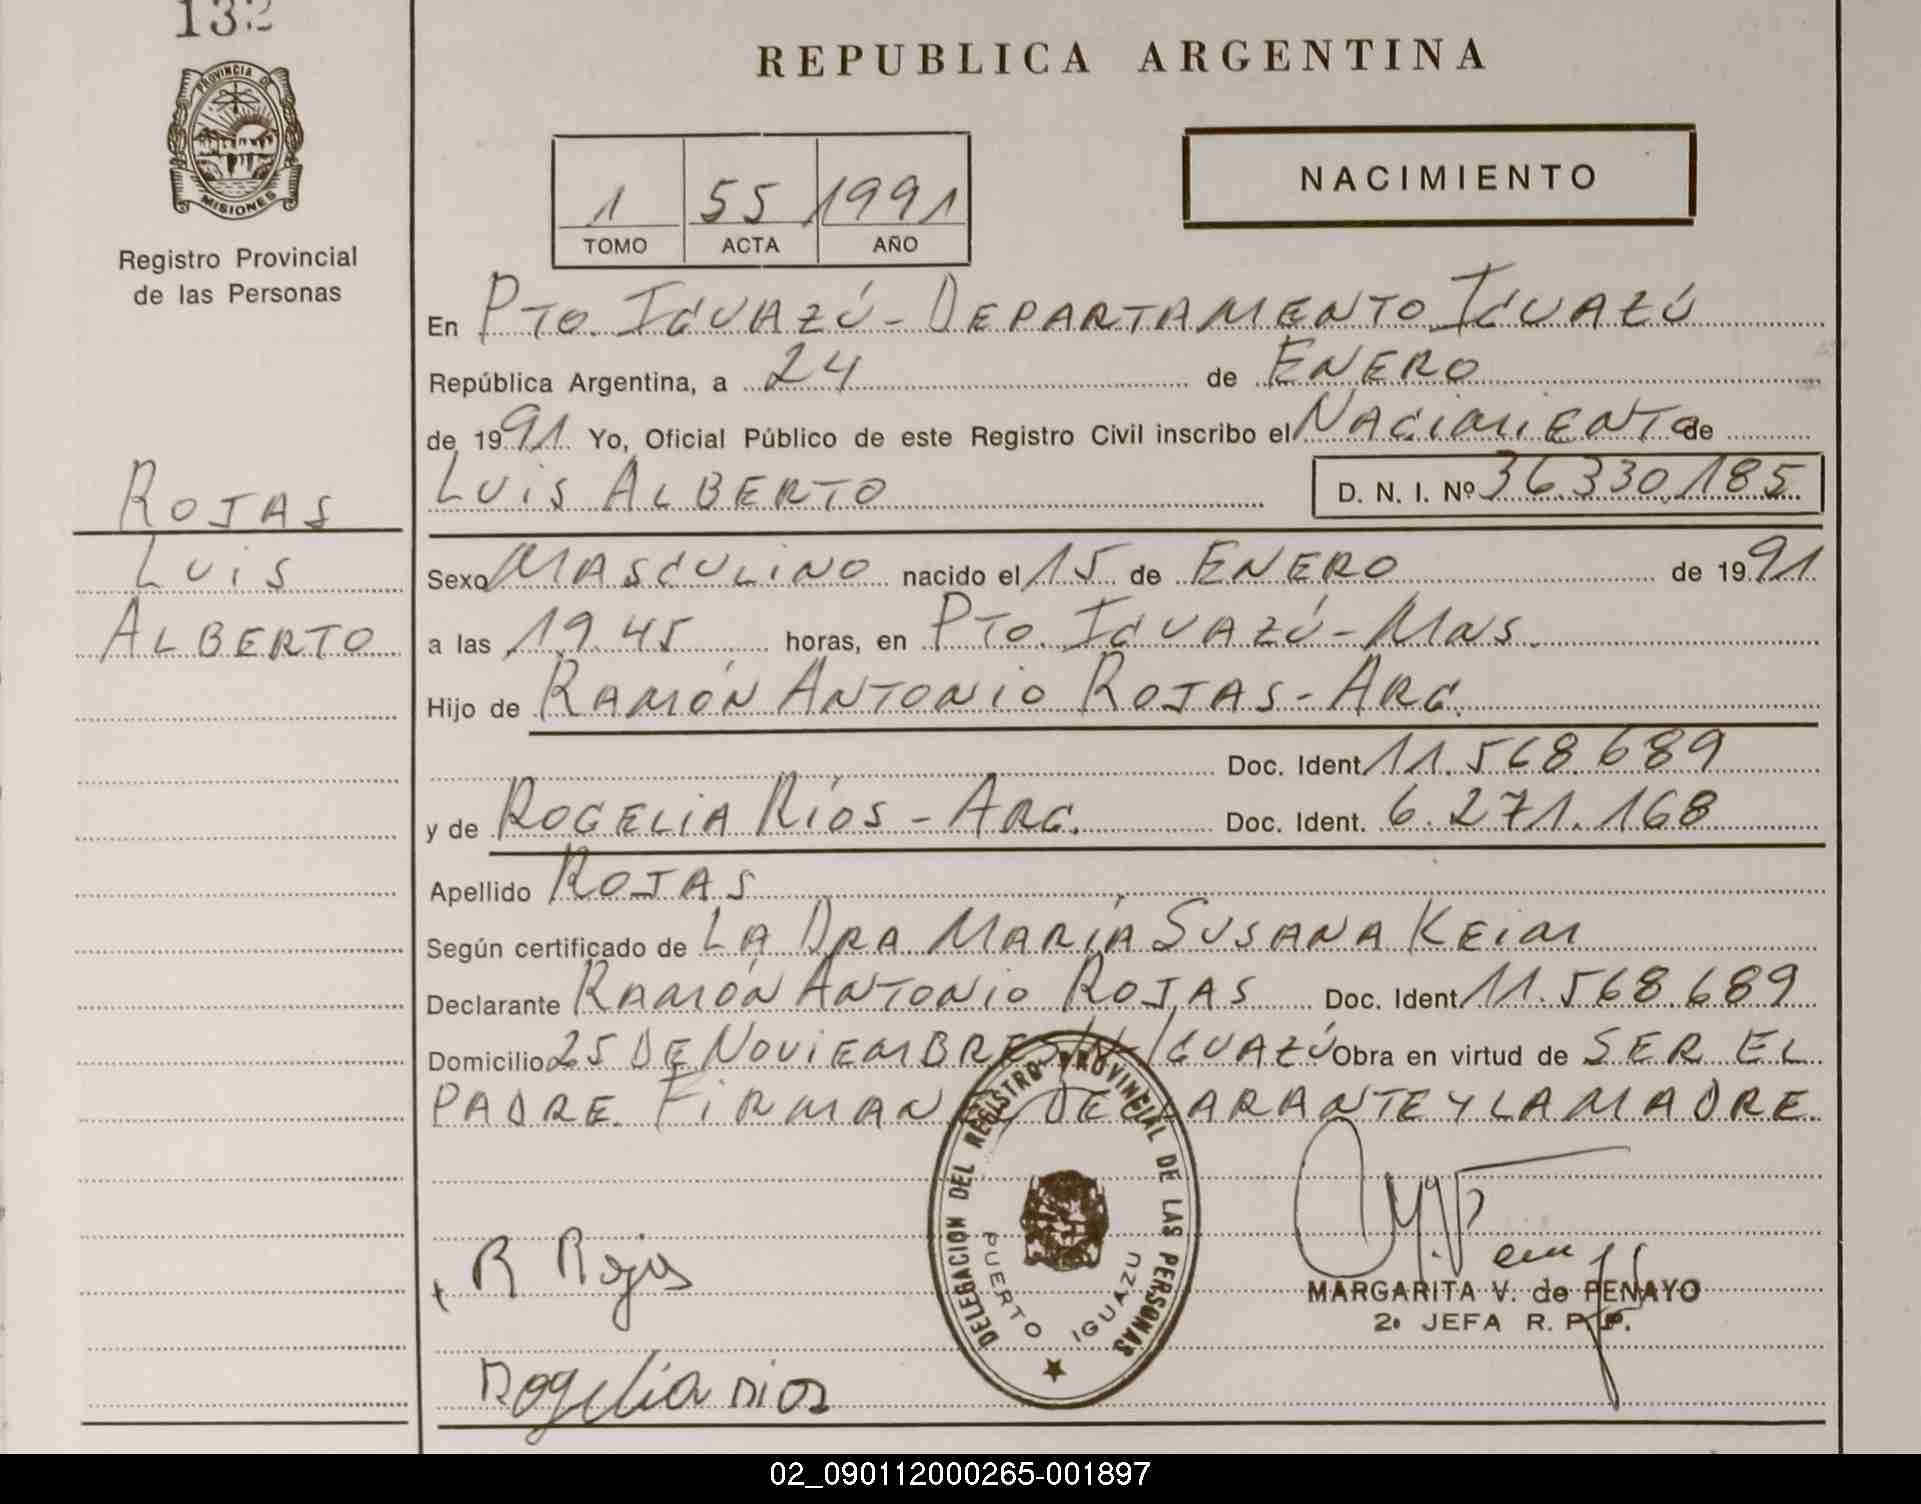 132
PROVINCIA DE
MISIONES
Registro Provincial
de las Personas
ROJAS
LUIS
ALBERTO
REPUBLICA ARGENTINA
1 55 1991
TOMO ACTA AÑO
NACIMIENTO
En PTO. IGUAZÚ - DEPARTAMENTO IGUAZÚ
República Argentina, a 24 de ENERO
de 1991 Yo, Oficial Público de este Registro Civil inscribo el NACIMIENTO de
LUIS ALBERTO D. N. I. Nº 36.330.185
Sexo MASCULINO nacido el 15 de ENERO de 1991
a las 19.45 horas, en PTO. IGUAZÚ - MNS.
Hijo de RAMÓN ANTONIO ROJAS - ARG.
Doc. Ident. 11.568.689
y de ROGELIA RÍOS - ARG. Doc. Ident. 6.271.168
Apellido ROJAS
Según certificado de LA DRA MARÍA SUSANA KEIM
Declarante RAMÓN ANTONIO ROJAS Doc. Ident. 11.568.689
Domicilio 25 DE NOVIEMBRE S/N - IGUAZÚ Obra en virtud de SER EL
PADRE. FIRMAN DECLARANTE Y LA MADRE.
DELEGACION DEL REGISTRO PROVINCIAL DE LAS PERSONAS
PUERTO IGUAZU
R Rojas
MARGARITA V. de PENAYO
2º JEFA R. P. P.
Rogelia rios
02_090112000265-001897